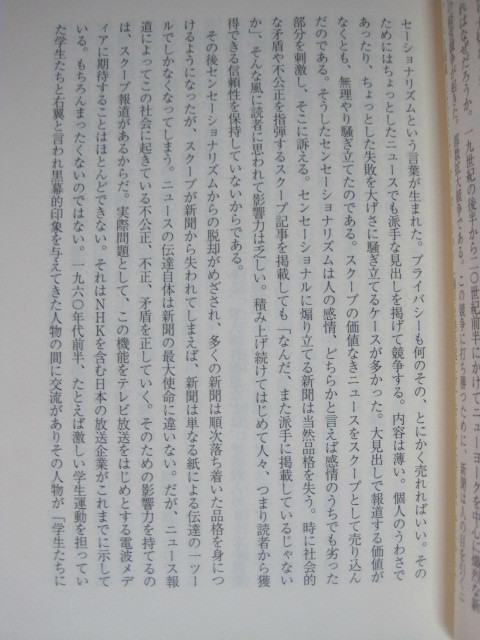 れはなぜだろうか。一九世紀の後半から二〇世紀前半にかけて
セーショナリズムという言葉が生まれた。プライバシーも何のその、とにかく売れればいい。その
ためにはちょっとしたニュースでも派手な見出しを掲げて競争する。内容は薄い。個人のうわさで
あったり、ちょっとした失敗を大げさに騒ぎ立てるケースが多かった。大見出しで報道する価値が
なくとも、無理やり騒ぎ立てたのである。スクープの価値なきニュースをスクープとして売り込ん
だのである。そうしたセンセーショナリズムは人の感情、どちらかと言えば感情のうちでも劣った
部分を刺激し、そこに訴える。センセーショナルに煽り立てる新聞は当然品格を失う。時に社会的
な矛盾や不公正を指弾するスクープ記事を掲載しても「なんだ、また派手に掲載しているじゃない
か」、そんな風に読者に思われて影響力は乏しい。積み上げ続けてはじめて人々、つまり読者から獲
得できる信頼性を保持していないからである。
その後センセーショナリズムからの脱却がめざされ、多くの新聞は順次落ち着いた品格を身につ
けるようになったが、スクープが新聞から失われてしまえば、新聞は単なる紙による伝達の一ツー
ルでしかなくなってしまう。ニュースの伝達自体は新聞の最大使命に違いない。だが、ニュース報
道によってこの社会に起きている不公正、不正、矛盾を正していく。そのための影響力を持てるの
は、スクープ報道があるからだ。実際問題として、この機能をテレビ放送をはじめとする電波メデ
ィアに期待することはほとんどできない。それはNHKを含む日本の放送企業がこれまでに示して
いる。もちろんまったくないのではない。一九六〇年代前半、たとえば激しい学生運動を担ってい
た学生たちと右翼と言われ黒幕的印象を与えてきた人物の間に交流がありその人物が「学生たちに